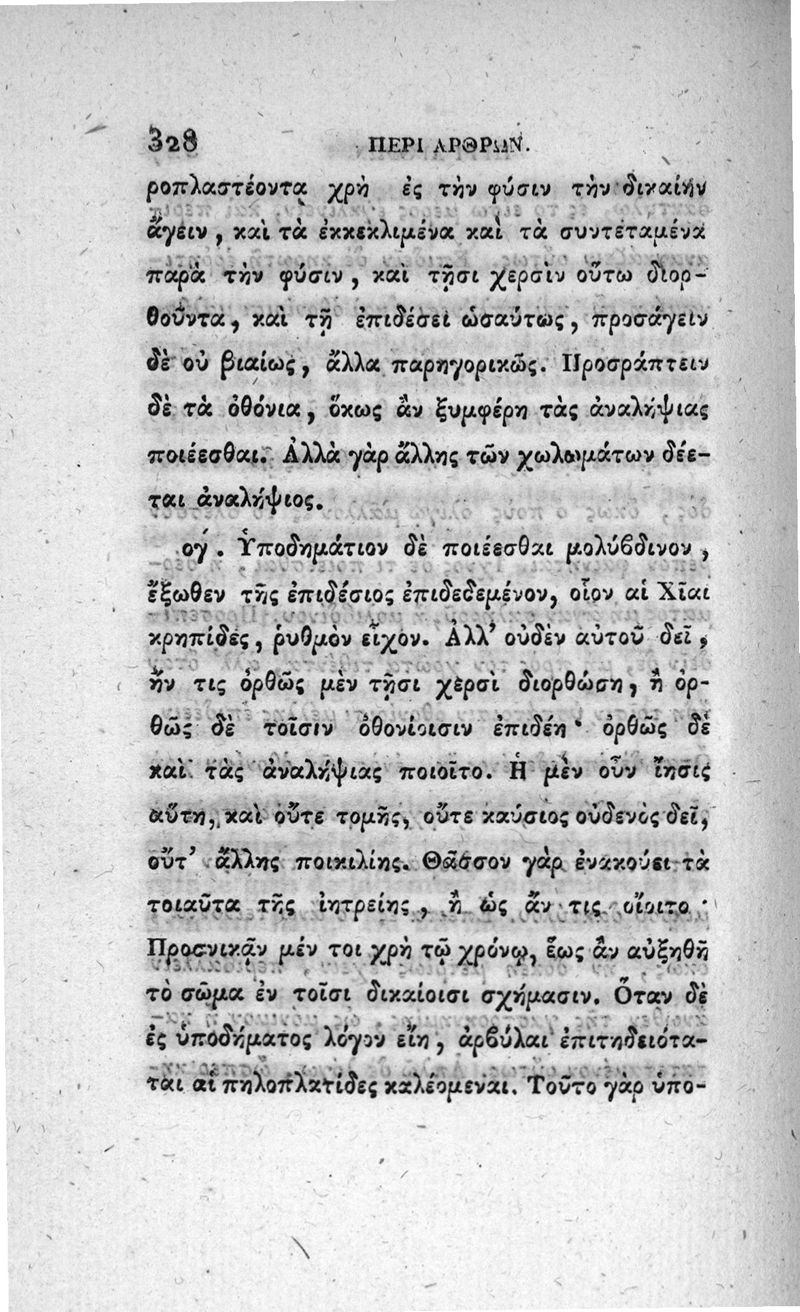 328 ΠΕΡΙ ΑΡΘΡΩΝ.
ροπλαστέοντα χρὴ ἐς τὴν φύσιν τὴν δικαίην
ἄγειν, καὶ τὰ ἐκκεκλιμένα καὶ τὰ συντεταμένα
παρὰ τὴν φύσιν, καὶ τῇσι χερσὶν οὕτω διορ-
θοῦντα, καὶ τῇ ἐπιδέσει ὡσαύτως, προσάγειν
δὲ οὐ βιαίως, ἄλλα παρηγορικῶς. Προσράπτειν
δὲ τὰ ὀθόνια, ὅκως ἂν ξυμφέρῃ τὰς ἀναλήψιας
ποιέεσθαι. Ἀλλὰ γὰρ ἄλλης τῶν χωλωμάτων δέε-
ται ἀναλήψιος.
ογ´. Ὑποδημάτιον δὲ ποιέεσθαι μολύβδινον,
ἔξωθεν τῆς ἐπιδέσιος ἐπιδεδεμένον, οἷον αἱ Χῖαι
κρηπίδες, ῥυθμὸν εἶχον. Ἀλλ' οὐδὲν αὐτοῦ δεῖ,
ἤν τις ὀρθῶς μὲν τῇσι χερσὶ διορθώσῃ, ἢ ὀρ-
θῶς δὲ τοῖσιν ὀθονίοισιν ἐπιδέῃ· ὀρθῶς δὲ
καὶ τὰς ἀναλήψιας ποιοῖτο. Ἡ μὲν οὖν ἴησις
αὕτη, καὶ οὔτε τομῆς, οὔτε καύσιος οὐδενὸς δεῖ,
οὔτ' ἄλλης ποικιλίης. Θᾶσσον γὰρ ἐνακούει τὰ
τοιαῦτα τῆς ἰητρείης, ἢ ὡς ἄν τις οἴοιτο·
Προσνικᾷν μέν τοι χρὴ τῷ χρόνῳ, ἕως ἂν αὐξηθῇ
τὸ σῶμα ἐν τοῖσι δικαίοισι σχήμασιν. Ὅταν δὲ
ἐς ὑποδήματος λόγον εἴη, ἀρβύλαι ἐπιτηδειότα-
ται αἱ πηλοπλατίδες καλέομεναι. Τοῦτο γὰρ ὑπο-